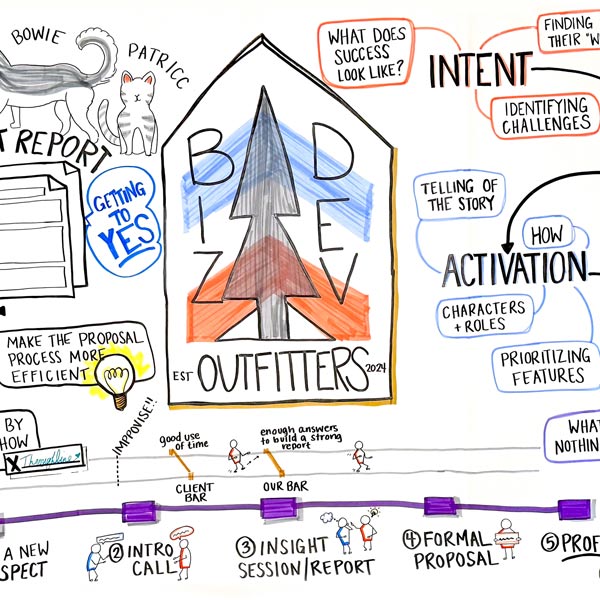 BOWIE
PATRICC
T REPORT
GETTING
TO
YES
MAKE THE PROPOSAL
PROCESS MORE
EFFICIENT
BY
HOW
X Throughline
IMPROVISE!!
BIZ
DEV
EST OUTFITTERS 2024
WHAT DOES
SUCCESS
LOOK LIKE?
INTENT
FINDING
THEIR "W
IDENTIFYING
CHALLENGES
TELLING OF
THE STORY
HOW
ACTIVATION
CHARACTERS
+ ROLES
PRIORITIZING
FEATURES
WHAT
NOTHIN
good use
of time
CLIENT
BAR
enough answers
to build a strong
report
OUR BAR
A NEW
SPECT
② INTRO
CALL
③ INSIGHT
SESSION/REPORT
④ FORMAL
PROPOSAL
⑤ PROF